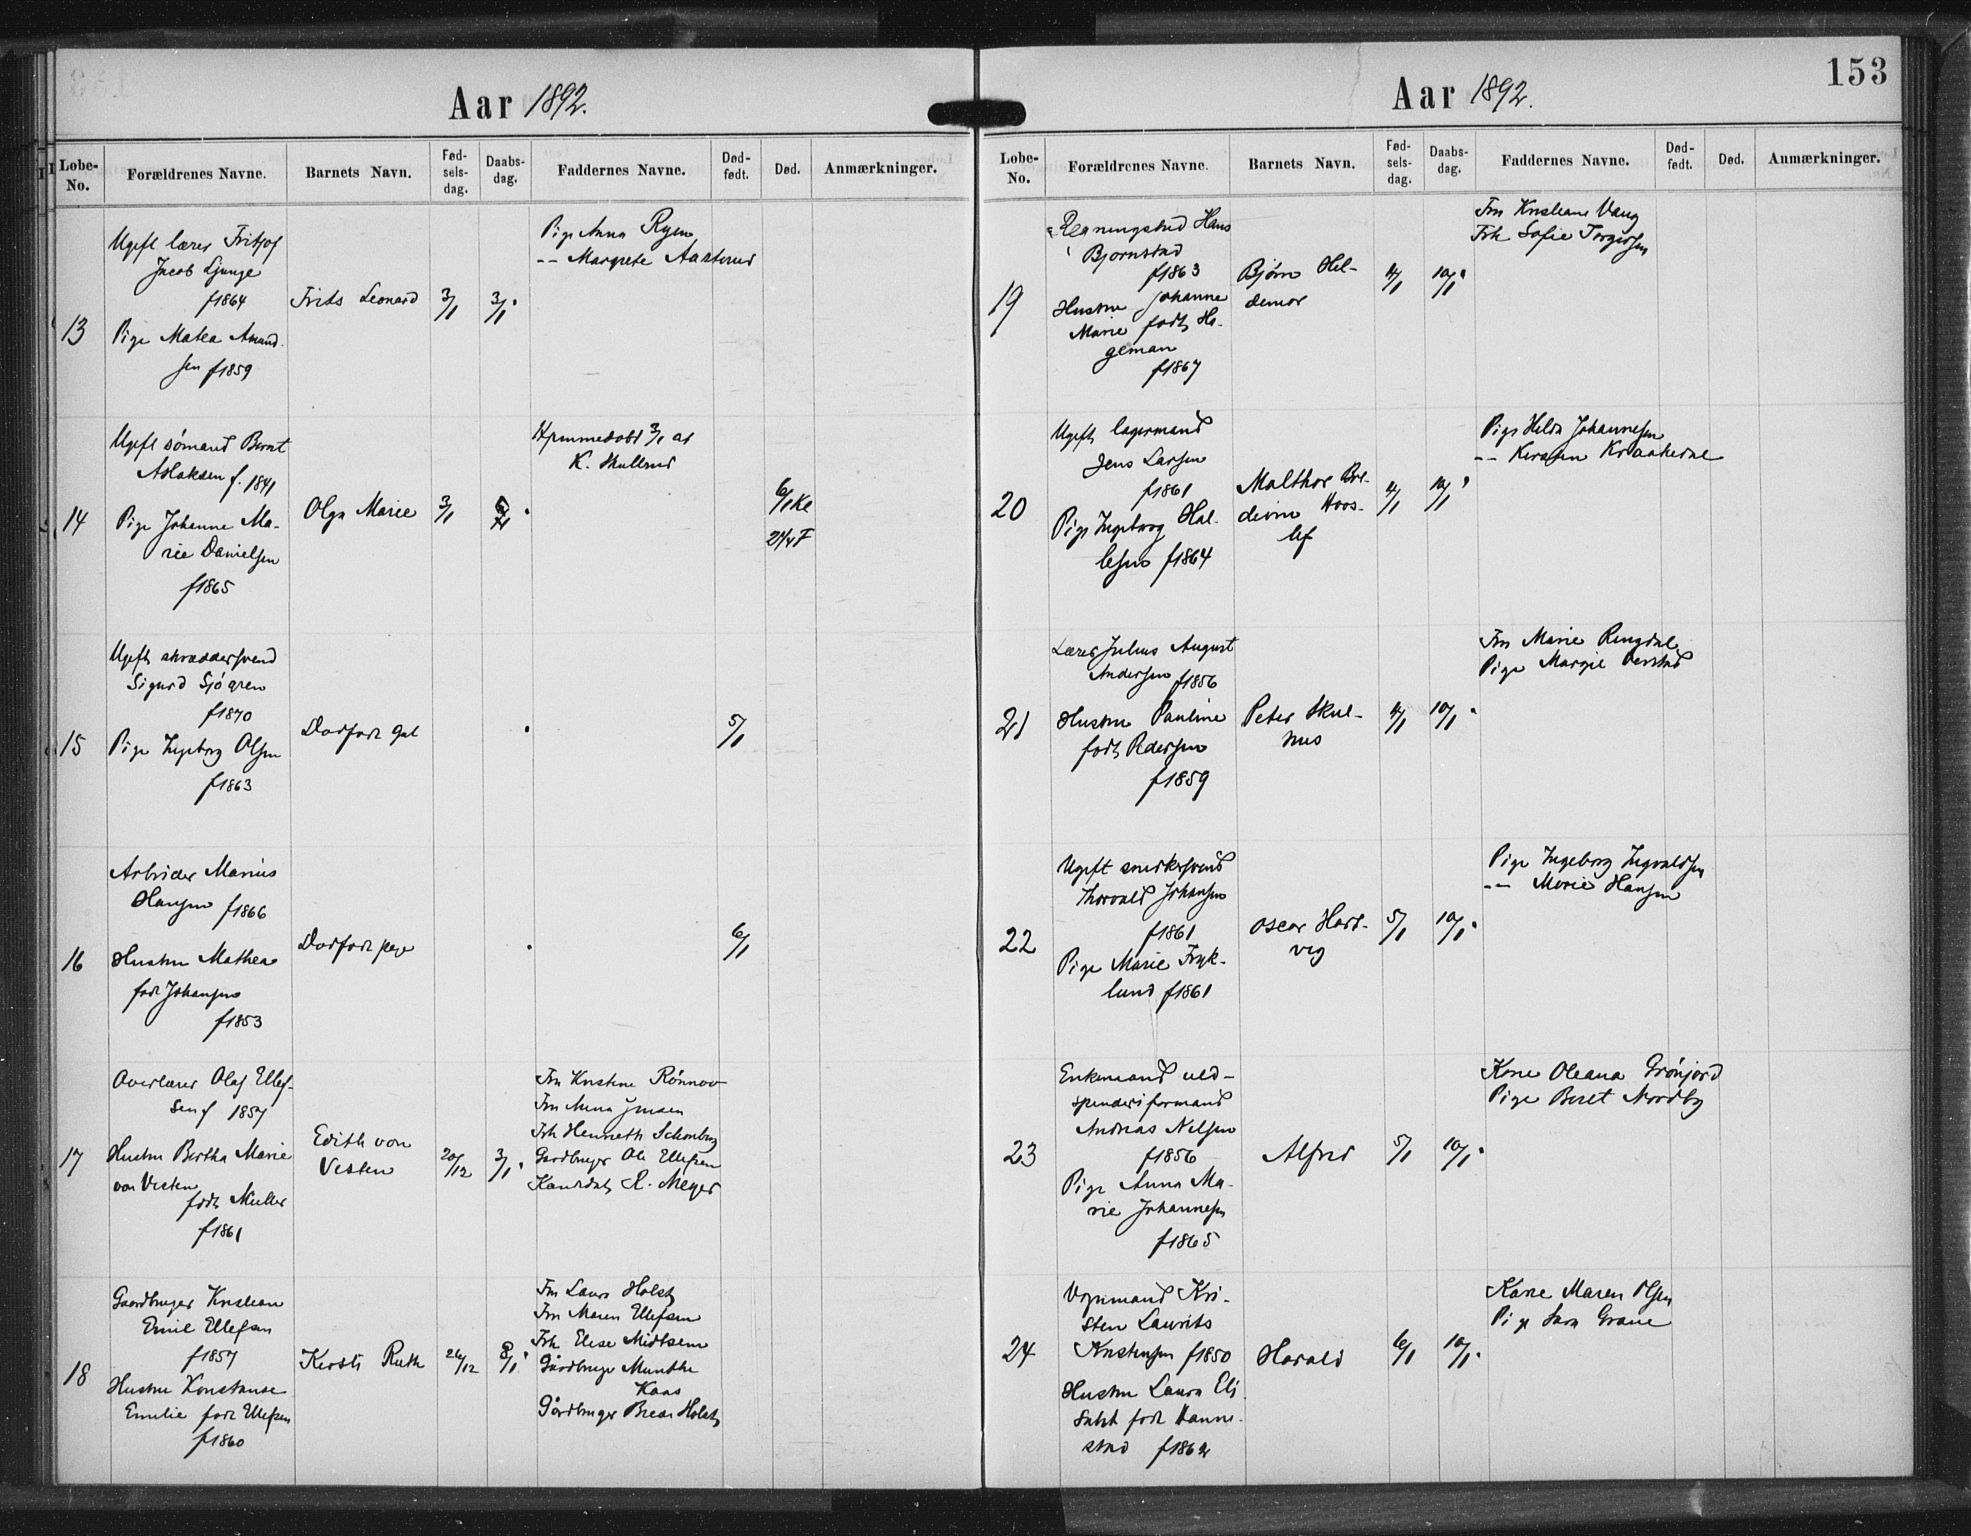 Aar 1892.
Løbe-No. Forældrenes Navne. Barnets Navn. Fød-sels-dag. Daabs-dag. Faddernes Navne. Død-født. Død. Anmærkninger.
13
Ugift lærer Fritjof
Jacob Ljunge
f 1864
Pige Matea Amund-
sen f 1859
Frits Leonard
3/1
3/1
Pige Anna Ryen
-- Margrete Aasterud
14
Ugift sømand Bernt
Aslaksen f. 1841
Pige Johanne Ma-
rie Danielsen
f 1865
Olga Marie
3/1
Hjemmedøbt 3/1 af
K. Skullrud
6/1 Kl
2 1/4 F
15
Ugift skræddersvend
Sigurd Sjögren
f 1870
Pige Ingeborg Olsen
f 1863
Dødfødt gut
5/1
16
Arbeider Marius
Hansen f 1866
Hustru Mathea
født Johansen
f 1853
Dødfødt pige
6/1
17
Overlærer Olaf Ellef-
sen f 1857
Hustru Bertha Marie
von Vesten
født Müller
f 1861
Edith von
Vesten
20/12
3/1
Fru Kristine Rönnov
Fru Anna Jensen
Frk Henriette Schönberg
Gardbruger Ole Ellefsen
Kandidat R. Meyer
18
Gaardbruger Kristian
Emil Ellefsen
f 1857
Hustru Konstanse
Emilie født Ellefsen
f 1860
Kirsti Ruth
26/12
8/1
Fru Laura Holst
Fru Maren Ellefsen
Frk Elise Midtsem
Gårdbruger Munthe
Kaas
Gårdbruger Holst
Aar 1892.
153
Løbe-No. Forældrenes Navne. Barnets Navn. Fød-sels-dag. Daabs-dag. Faddernes Navne. Død-født. Død. Anmærkninger.
19
Hans
Bjornstad
f 1863
Hustru Johanne
Marie født Ha-
geman
f 1867
Bjørn Hel-
demor
4/1
10/1
Fru Kristiane Vang
Frk Sofie Torgersen
20
Ugift lagermand
Jens Larsen
f 1861
Pige Ingeborg Hal-
lesen f 1864
Malthor Bol-
divin Hros-
lef
4/1
10/1
Pige Helda Johannesen
-- Kirsten Kraakerne
21
Lærer Julius August
Andersen f 1856
Hustru Pauline
født Pedersen
f 1859
Peter Skul-
nes
4/1
10/1
Fru Marie Ringdal
Pige Margit
22
Ugift snedkersvend
Thorvald Johansen
f 1861
Pige Marie Fryk-
lund f 1861
Oscar Hart-
vig
5/1
10/1
Pige Ingeborg Ingvaldsen
-- Marie Hansen
23
Enkemand uld-
spinderiformand
Andreas Nilsen
f 1856
Pige Anna Ma-
rie Johannesen
f 1865
Alfred
5/1
10/1
Kone Oleana Grönjord
Pige Beret Nordby
24
Vognmand Kri-
sten Laurits
Kristensen f 1850
Hustru Laura Eli-
sabet født Hanne-
stad f 1862
Harald
6/1
10/1
Kone Maren Olsen
Pige Sara Grane